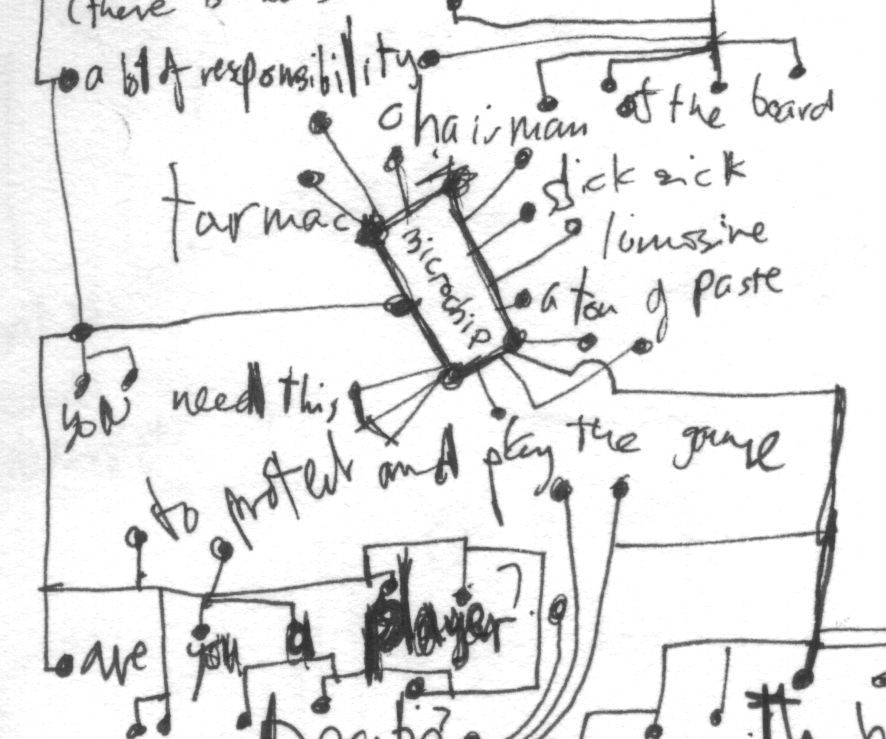 (there
a lot of responsibility
chairman of the board
slick sick
tarmac
limosine
microchip
a ton of paste
you need this
to protect and play the game
are you a player?